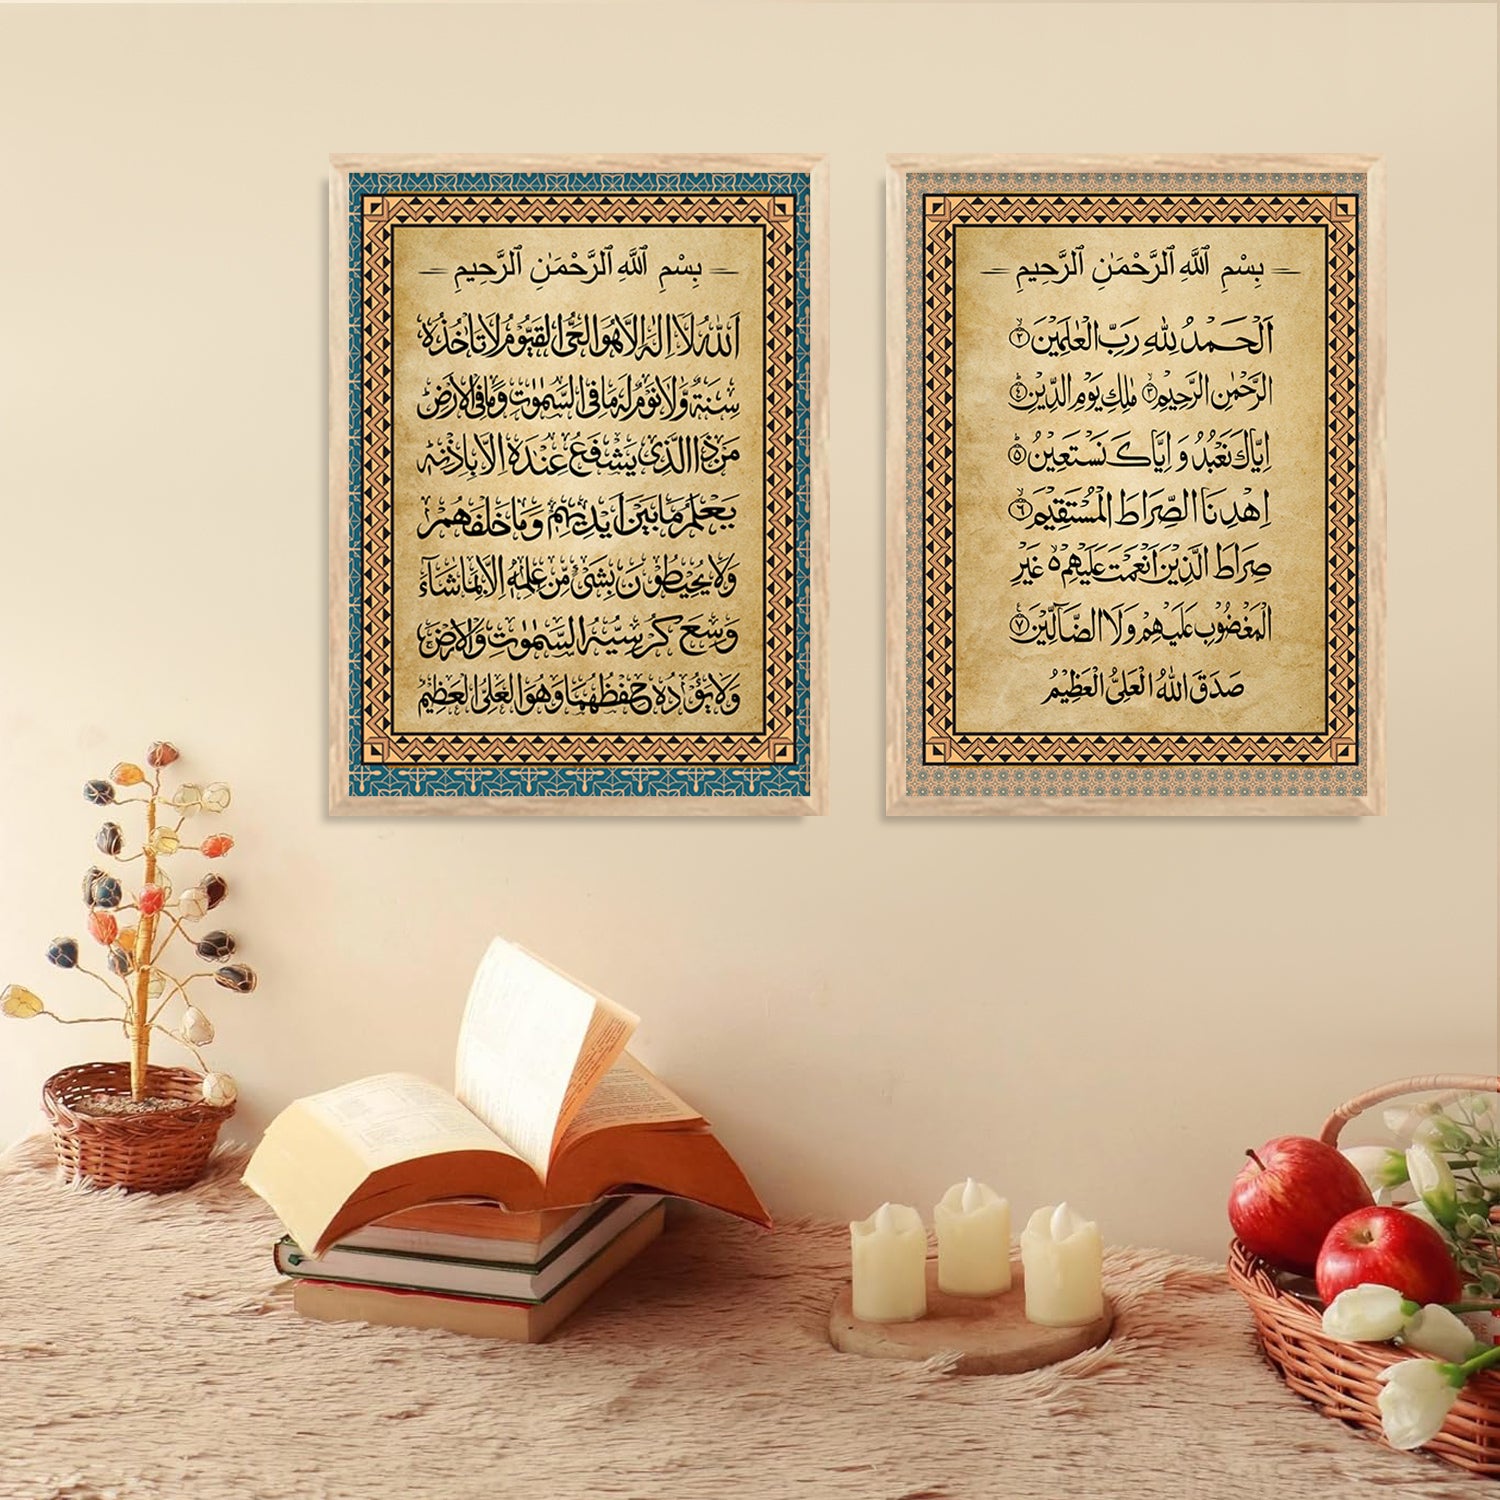 بِسْمِ ٱللَّهِ ٱلرَّحْمَـٰنِ ٱلرَّحِيمِ
اَللّٰهُ لَآ اِلٰهَ اِلَّا هُوَ الْحَيُّ الْقَيُّوْمُ لَا تَاْخُذُهٗ
سِنَةٌ وَّلَا نَوْمٌ لَهٗ مَا فِى السَّمٰوٰتِ وَمَا فِى الْاَرْضِ
مَنْ ذَا الَّذِىْ يَشْفَعُ عِنْدَهٗٓ اِلَّا بِاِذْنِهٖ
يَعْلَمُ مَا بَيْنَ اَيْدِيْهِمْ وَمَا خَلْفَهُمْ
وَلَا يُحِيْطُوْنَ بِشَىْءٍ مِّنْ عِلْمِهٖٓ اِلَّا بِمَا شَآءَ
وَسِعَ كُرْسِيُّهُ السَّمٰوٰتِ وَالْاَرْضَ
وَلَا يَئُوْدُهٗ حِفْظُهُمَا وَهُوَ الْعَلِىُّ الْعَظِيْمُ
بِسْمِ ٱللَّهِ ٱلرَّحْمَـٰنِ ٱلرَّحِيمِ
اَلْحَـمْدُ لِلّٰهِ رَبِّ الْعٰلَمِيْنَ ۙ﴿٢﴾
الرَّحْمٰنِ الرَّحِيْمِ ۙ﴿٣﴾ مٰلِكِ يَوْمِ الدِّيْنِ ۗ﴿٤﴾
اِيَّاكَ نَعْبُدُ وَ اِيَّاكَ نَسْتَعِيْنُ ۗ﴿٥﴾
اِهْدِنَا الصِّرَاطَ الْمُسْتَقِيْمَ ۙ﴿٦﴾
صِرَاطَ الَّذِيْنَ اَنْعَمْتَ عَلَيْهِمْ ەۙ غَيْرِ
الْمَغْضُوْبِ عَلَيْهِمْ وَلَا الضَّآلِّيْنَ ﴿٧﴾
صَدَقَ اللّٰهُ الْعَلِىُّ الْعَظِيْمُ